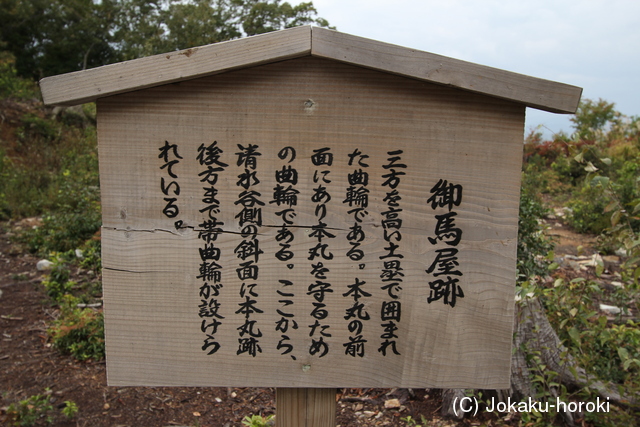 御馬屋跡
三方を高い土塁で囲まれ
た曲輪である。本丸の前
面にあり本丸を守るため
の曲輪である。ここから、
清水谷側の斜面に本丸跡
後方まで帯曲輪が設けら
れている。
(C) Jokaku-horoki